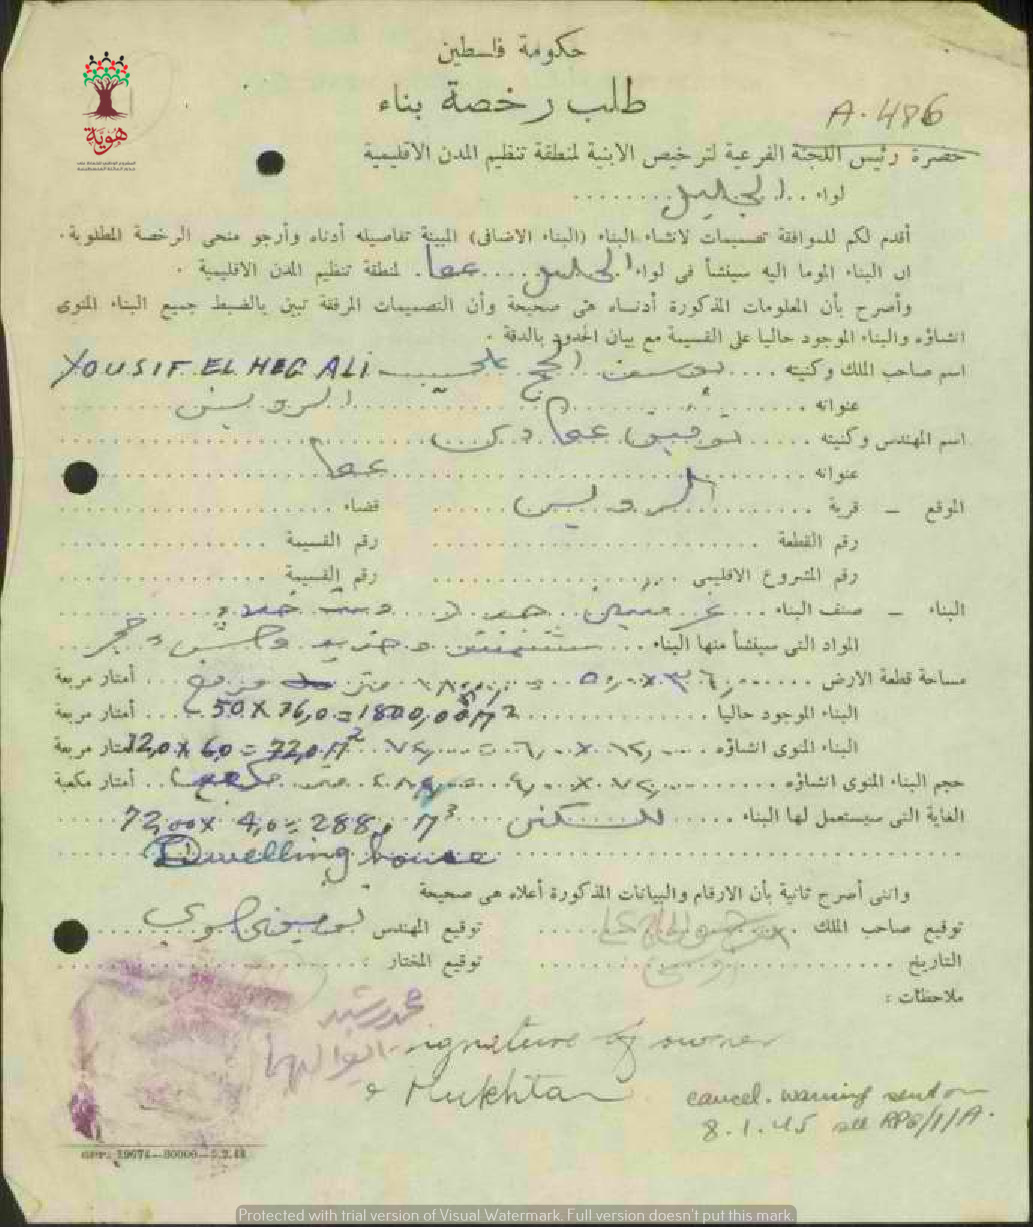 حكومة فلسطين
طلب رخصة بناء
A.486
حضرة رئيس اللجنة الفرعية لترخيص الابنية لمنطقة تنظيم المدن الاقليمية
لواء ... الجليل ........
أقدم لكم للموافقة تصميمات لانشاء البناء (البناء الاضافى) المبينة تفاصيله أدناه وأرجو منحى الرخصة المطلوبة.
ان البناء الموما اليه سينشأ فى لواء الجليل .... عكا. لمنطقة تنظيم المدن الاقليمية .
وأصرح بأن المعلومات المذكورة أدناه هى صحيحة وأن التصميمات المرفقة تبين بالضبط جميع البناء المنوى
انشاؤه والبناء الموجود حاليا على القسيمة مع بيان الحدود بالدقة .
اسم صاحب الملك وكنيته .... يوسف الحج علي حبيب YOUSIF EL HEG ALI
عنوانه ........ الرويس
اسم المهندس وكنيته ..... توفيق
عنوانه ........ عكا
الموقع — قرية ........ الرويس ........ قضاء ........
رقم القطعة ........ رقم القسيمة ........
رقم المشروع الاقليمى ........ رقم القسيمة ........
البناء — صنف البناء ...
المواد التى سينشأ منها البناء ... وحديد وخشب وحجر
مساحة قطعة الارض ...... ٣٦,٠ × ٥٠,٠ = ١٨٠٠,٠٠ متر مربع ... أمتار مربعة
البناء الموجود حاليا ........ 50 X 36,0 = 1800,00 M2 ... أمتار مربعة
البناء المنوى انشاؤه ..... ١٢,٠٠ × ٦,٠ = ٧٢,٠٠ 12,0 X 6,0 = 72,0 M2 أمتار مربعة
حجم البناء المنوى انشاؤه ... ٧٢,٠٠ × ٤,٠ = ٢٨٨,٠ متر مكعب .. أمتار مكعبة
الغاية التى سيستعمل لها البناء ..... للسكنى 72,00 X 4,0 = 288, M3
Dwelling house
واننى أصرح ثانية بأن الارقام والبيانات المذكورة أعلاه هى صحيحة
توقيع صاحب الملك ........ توقيع المهندس
التاريخ ........ توقيع المختار ........
ملاحظات :
محمد رشيد
ابو الهيجا
Signature of owner
& Mukhtar
cancel. warning sent on
8.1.45 see RP6/1/A.
GPP. 19674—80000—5.2.43
هوية
Protected with trial version of Visual Watermark. Full version doesn't put this mark.